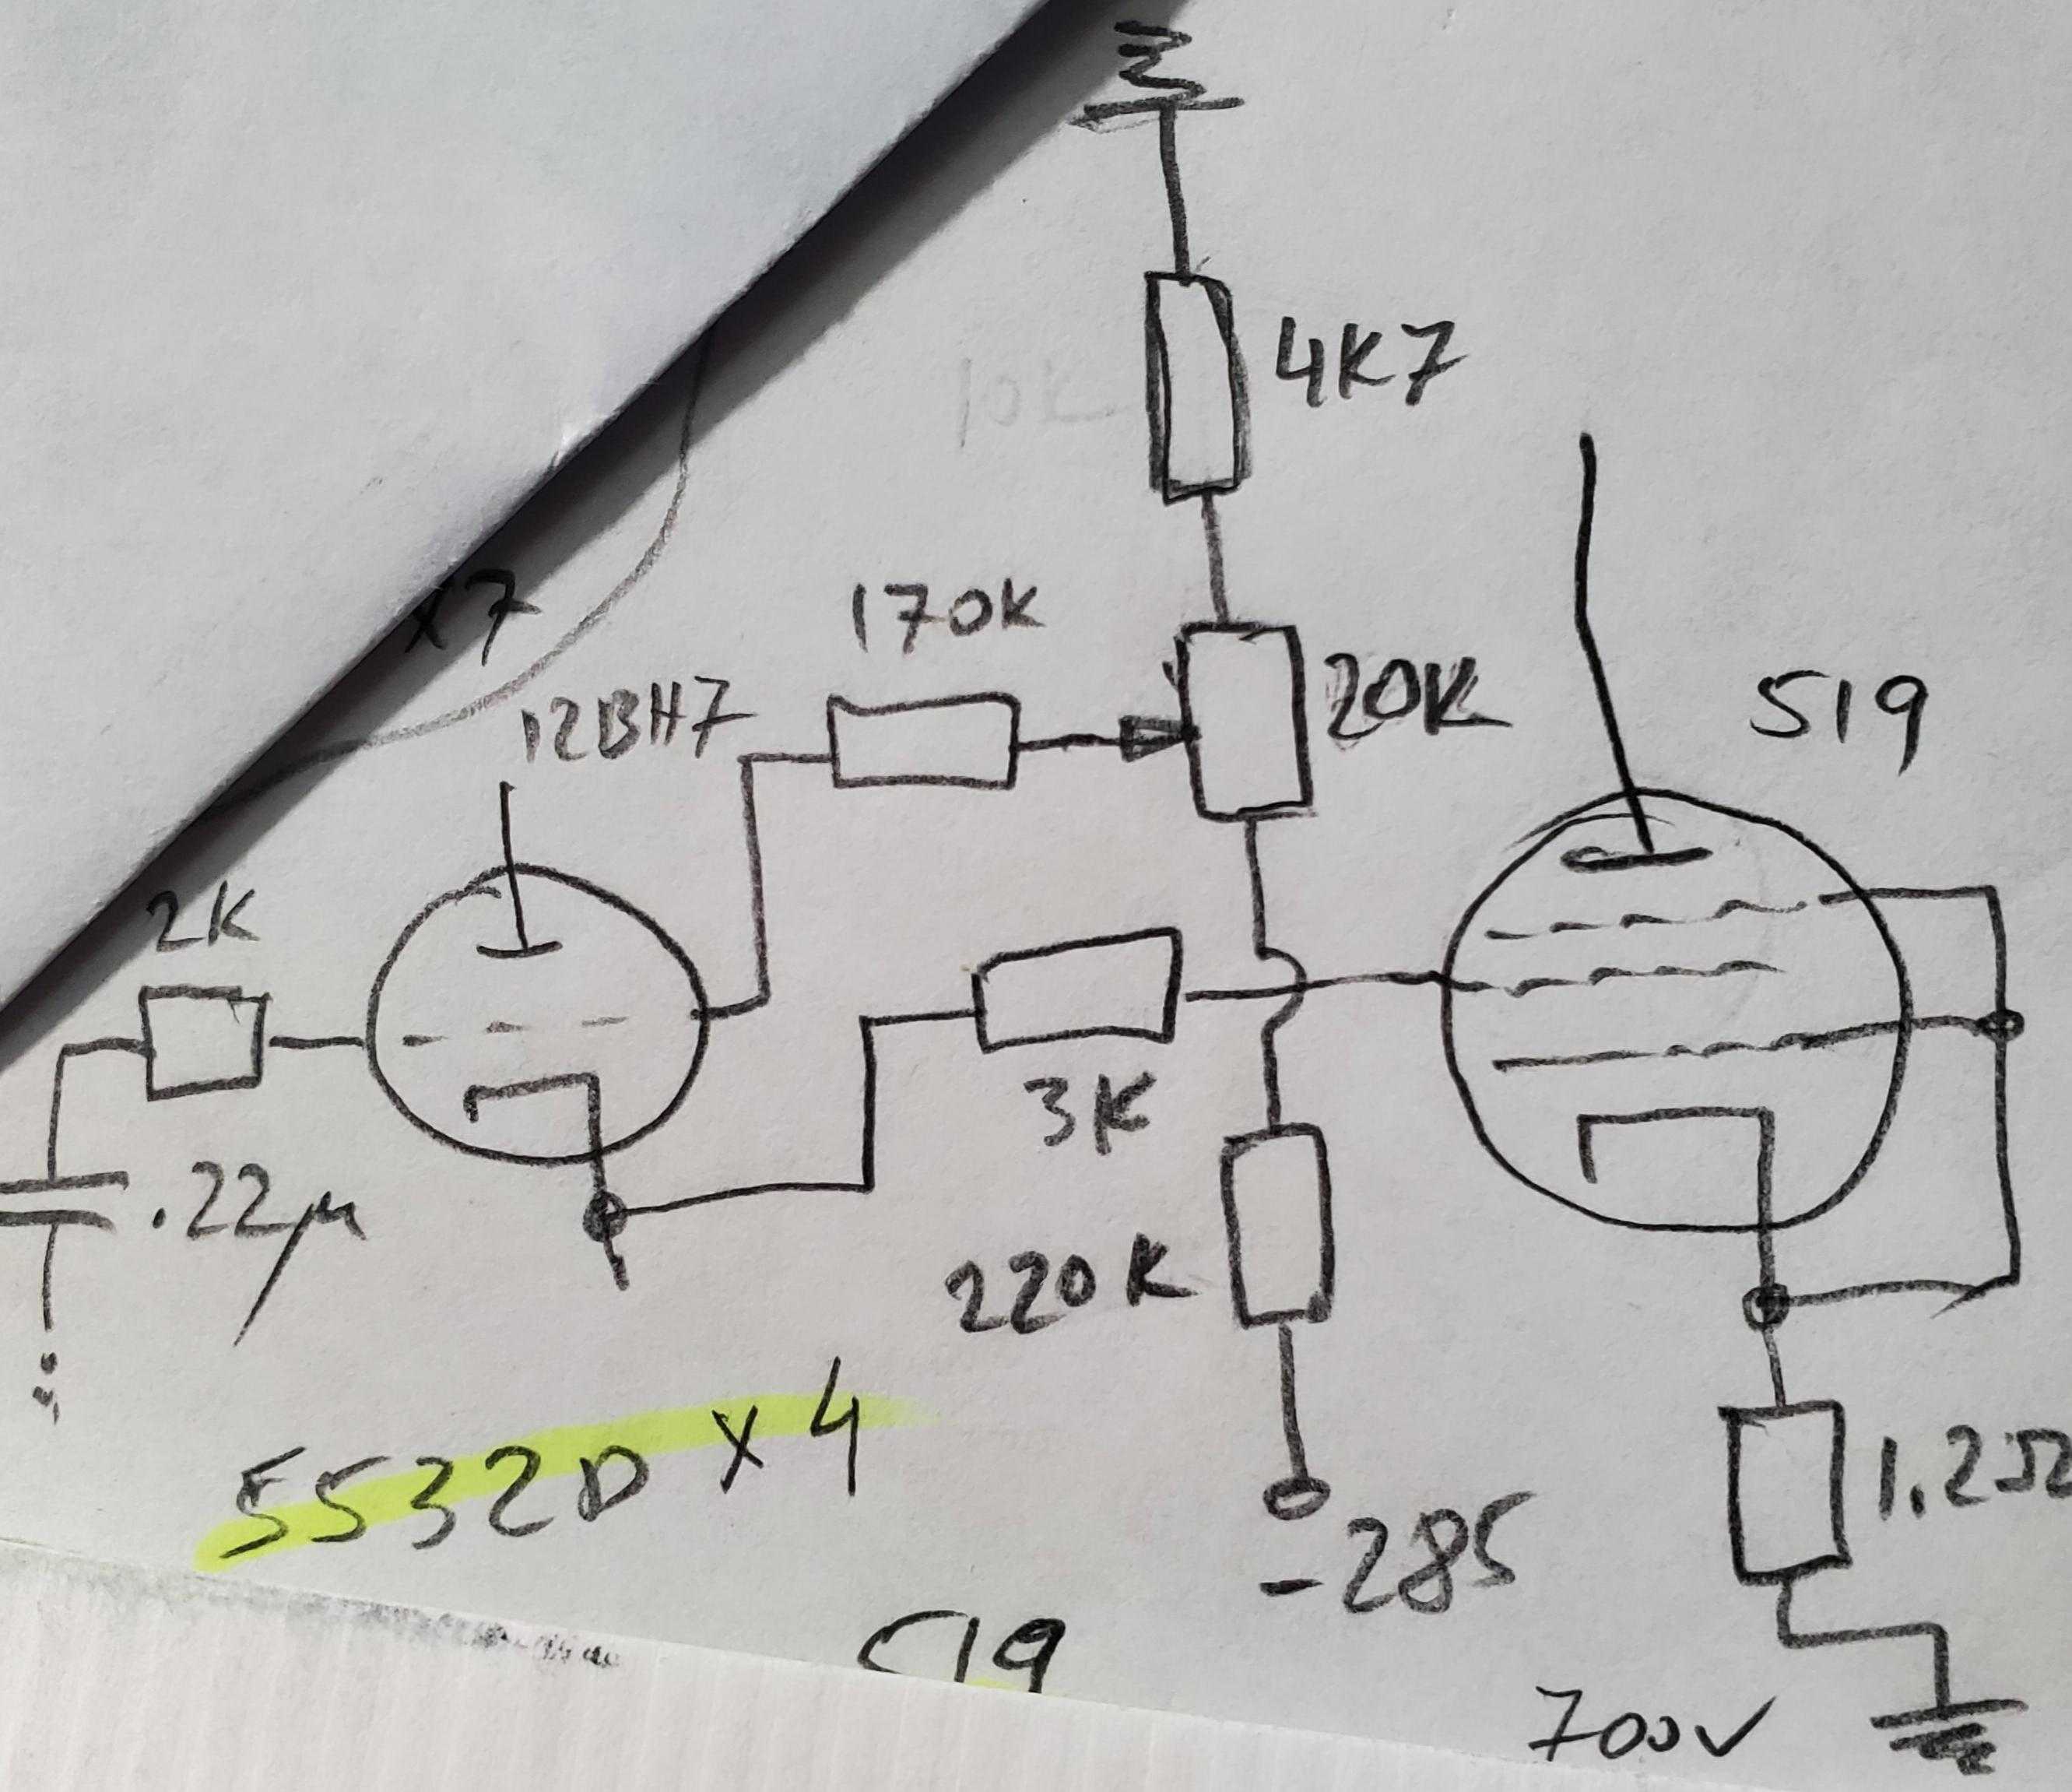 4K7
10K
x7
170K
12BH7
20K
519
2K
3K
.22µ
220K
1.2Ω
5532D x 4
-285
519
700V